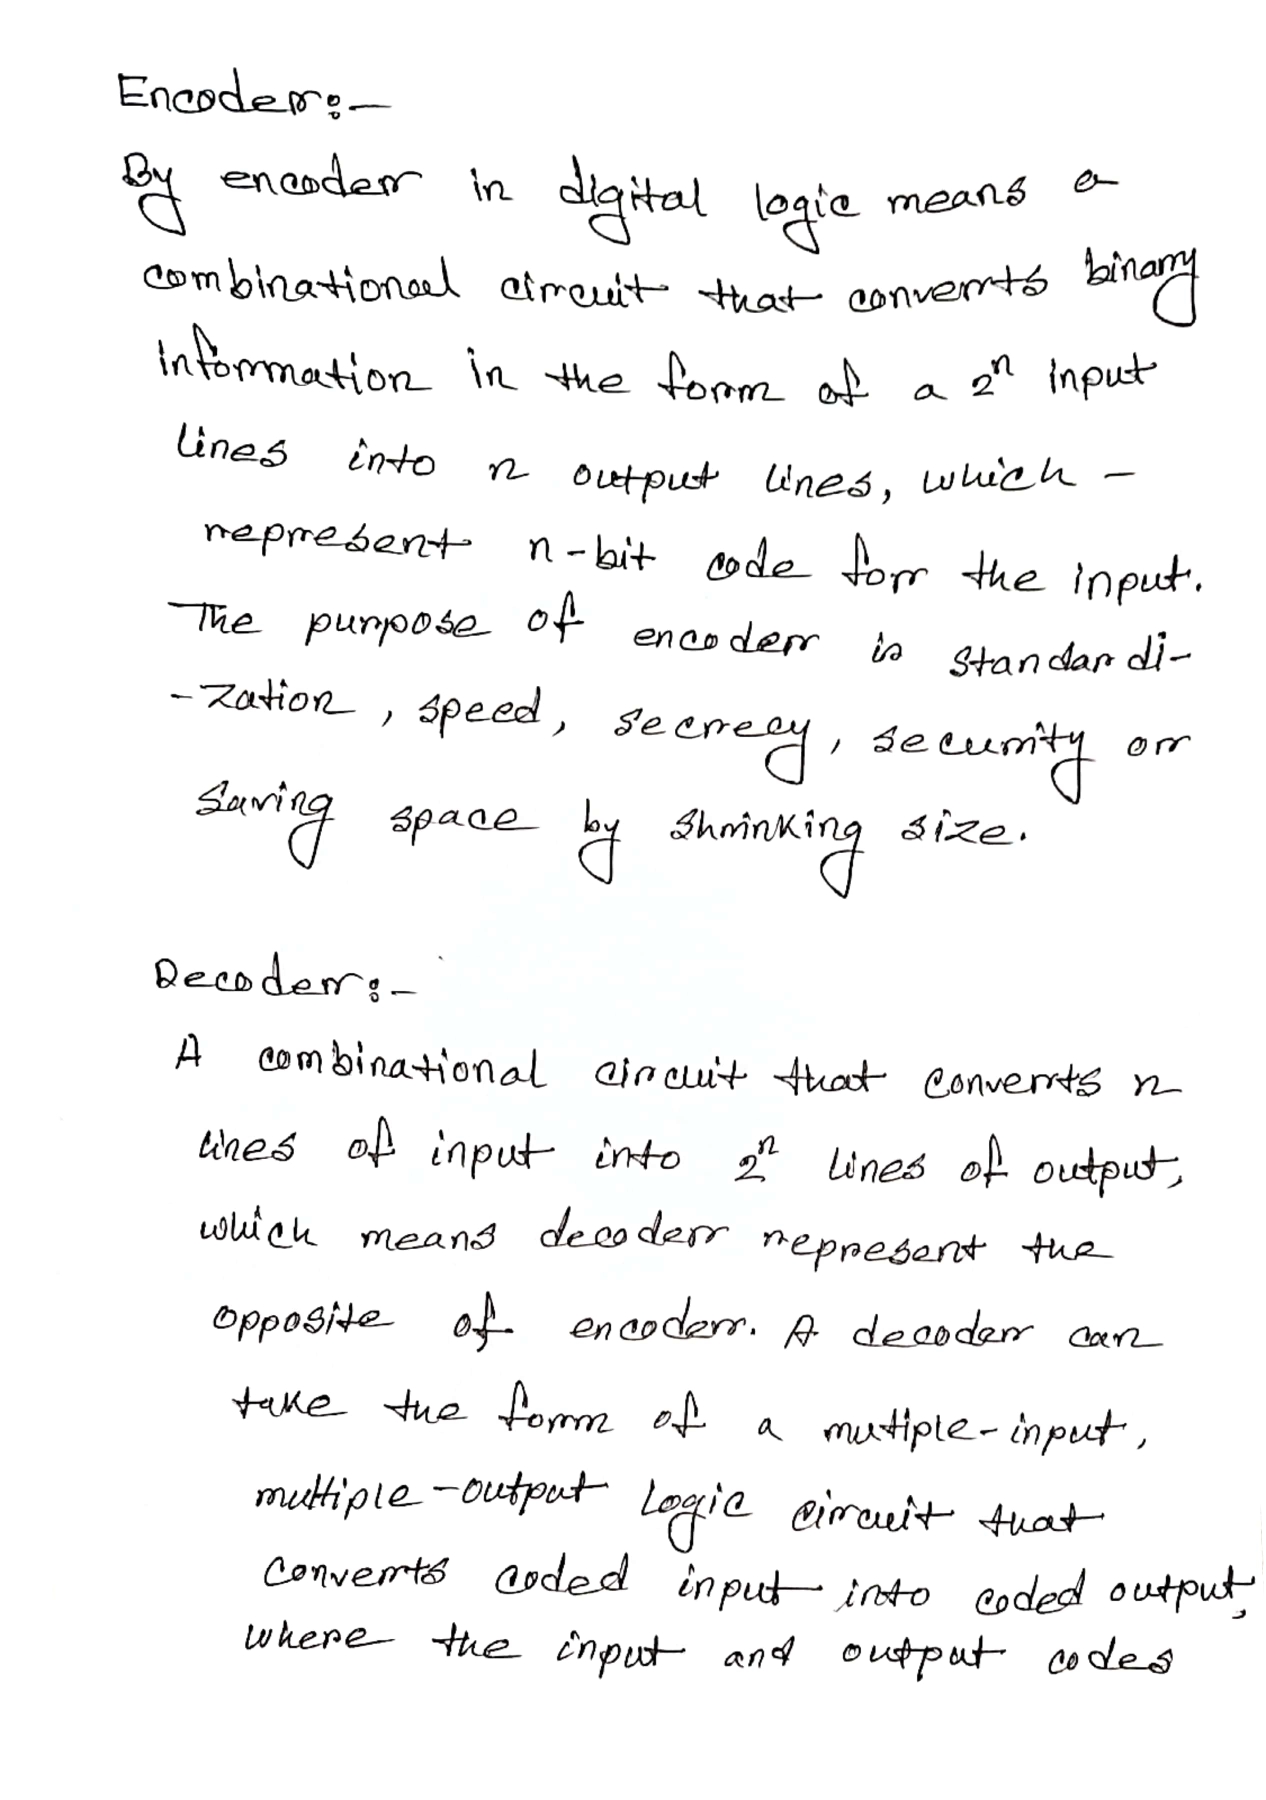 Encoder:-
By encoder in digital logic means a
combinational circuit that converts binary
information in the form of a 2ⁿ input
lines into n output lines, which -
represent n-bit code for the input.
The purpose of encoder is standardi-
-zation, speed, secrecy, security or
saving space by shrinking size.
Decoder:-
A combinational circuit that converts n
lines of input into 2ⁿ lines of output,
which means decoder represent the
opposite of encoder. A decoder can
take the form of a mutiple-input,
multiple-output logic circuit that
converts coded input into coded output,
where the input and output codes